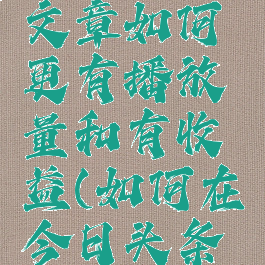 文章如何
更有播放
量和有收
益(如何在
今日头条